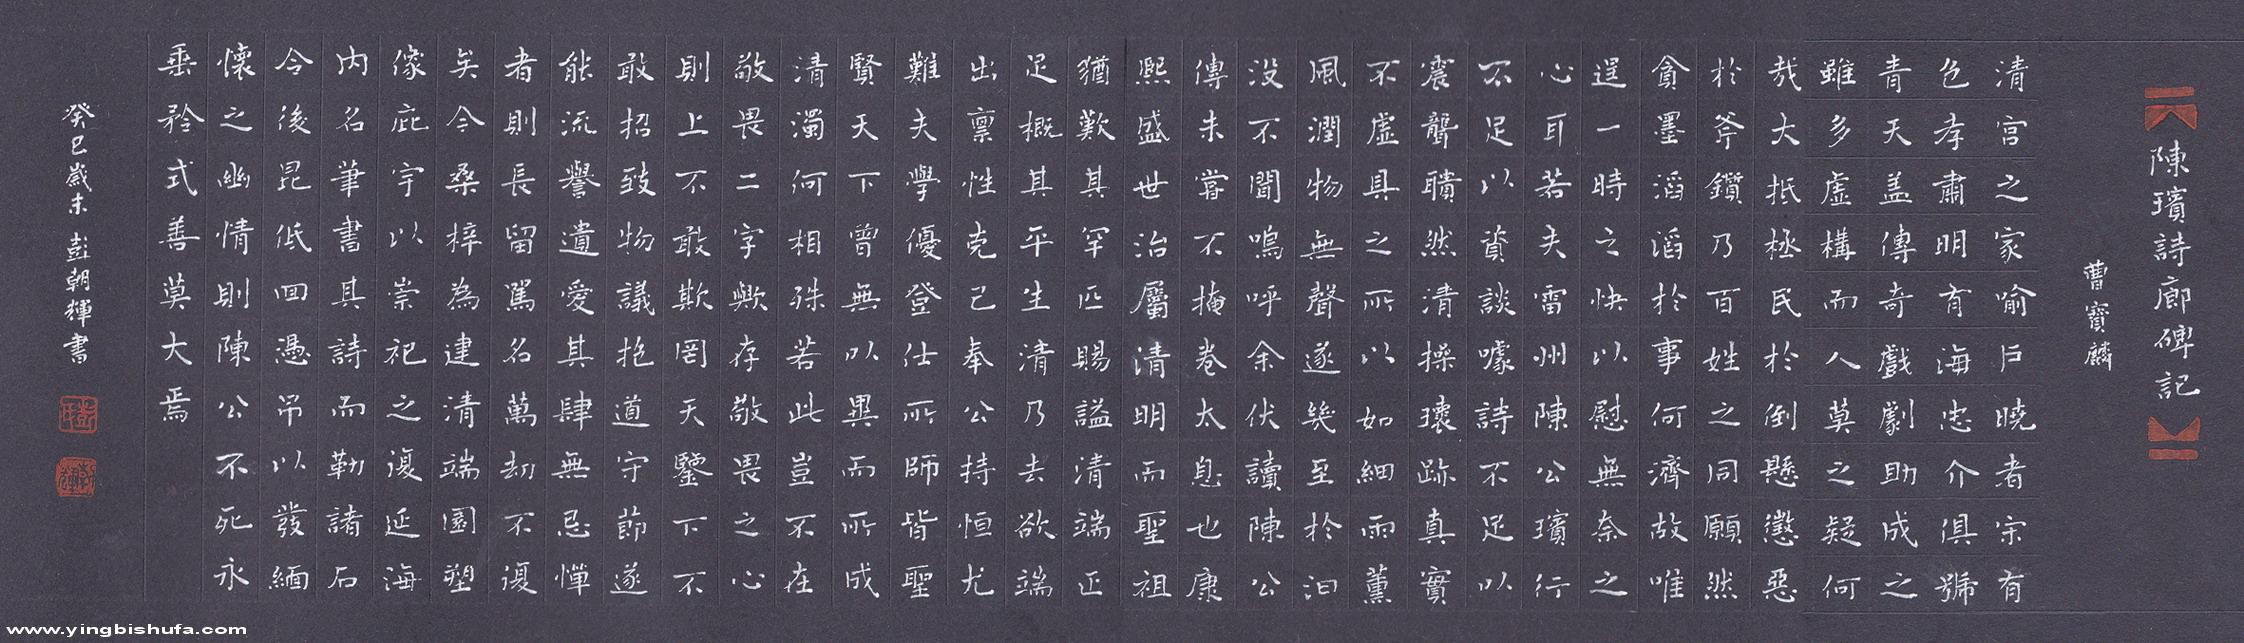 陳璸詩廊碑記
曹寶麟
清官之家喻戶曉者宋有
包孝肅明有海忠介俱號
青天蓋傳奇戲劇助成之
雖多虛構而人莫之疑何
哉大抵拯民於倒懸懲惡
於斧鑕乃百姓之同願然
貪墨滔滔於事何濟故唯
逞一時之快以慰無奈之
心耳若夫雷州陳公璸行
不足以資談噱詩不足以
震聾聵然清操瓌跡真實
不虛具之所以如細雨薰
風潤物無聲遂幾至於汩
没不聞嗚呼余伏讀陳公
傳未嘗不掩卷太息也康
熙盛世治屬清明而聖祖
猶歎其罕匹賜謚清端正
足概其平生清乃去欲端
出稟性克己奉公持恒尤
難夫學優登仕所師皆聖
賢天下曾無以異而所成
清濁何相殊若此豈不在
敬畏二字歟存敬畏之心
則上不敢欺罔天鑒下不
敢招致物議抱道守節遂
能流譽遺愛其肆無忌憚
者則長留罵名萬劫不復
矣今桑梓為建清端園塑
像庇宇以崇祀之復延海
内名筆書其詩而勒諸石
令後昆低回憑吊以發緬
懷之幽情則陳公不死永
垂矜式善莫大焉
癸巳歲末 彭朝輝書
www.yingbishufa.com